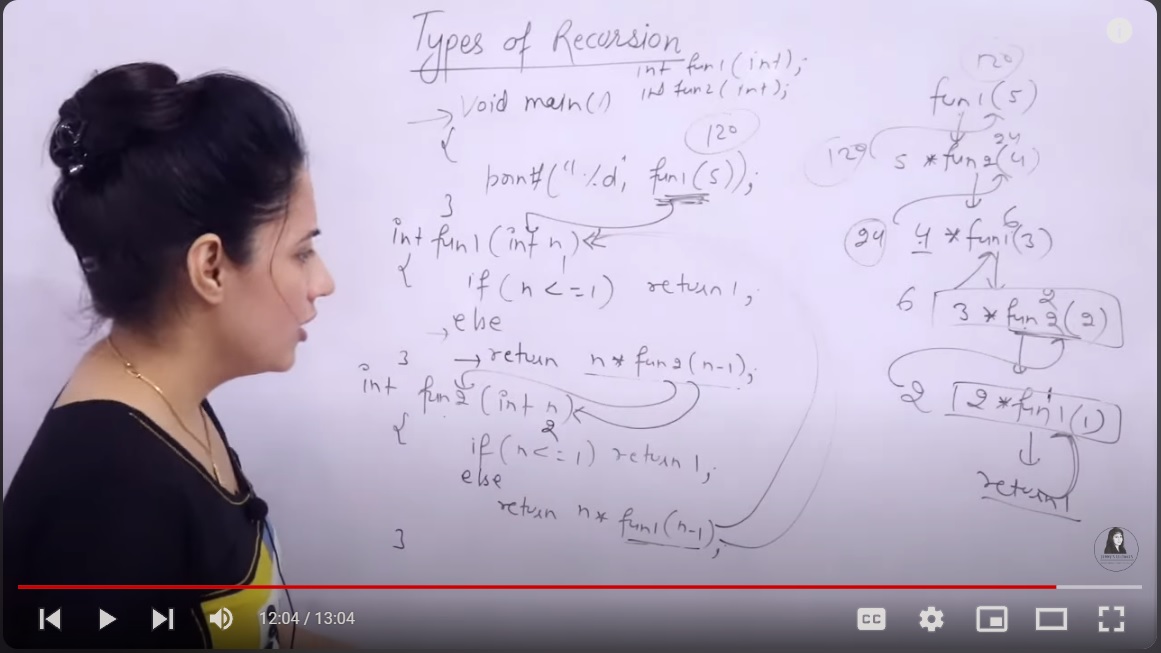 Types of Recursion
int fun1(int);
int fun2(int);
void main()
{
120
printf("%d", fun1(5));
}
int fun1(int n)
1
{
if(n<=1) return 1;
else
return n*fun2(n-1);
}
int fun2(int n)
2
{
if(n<=1) return 1;
else
return n*fun1(n-1);
}
120
fun1(5)
24
120 5*fun2(4)
6
24 4*fun1(3)
2
6 3*fun2(2)
1
2 2*fun1(1)
return 1
12:04 / 13:04
CC